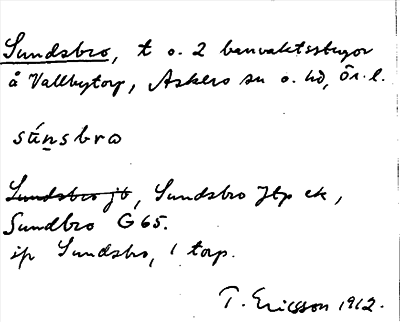 Sundsbro, t o. 2 banvaktsstugor
å Vallbytorp, Askers sn o. hd, Ör. l.
súṇsbro
Sundsbro jb, Sundsbro Jtp ek,
Sundbro G 65.
ip Sundsbro, 1 torp.
T. Ericsson 1912.